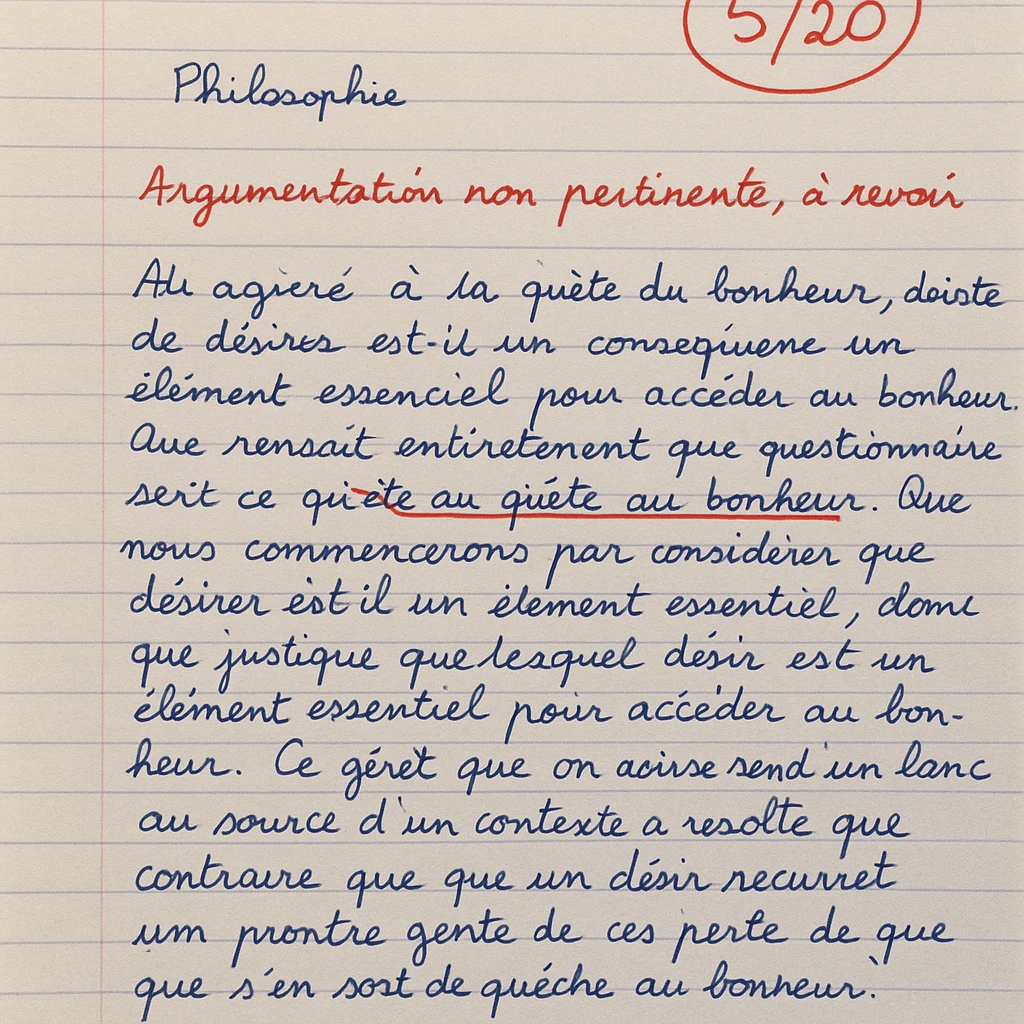 5/20
Philosophie
Argumentation non pertinente, à revoir
Ali agieré à la quète du bonheur, deiste
de désires est-il un conseqiuene un
élément essenciel pour accéder au bonheur.
Que rensait entiretenent que questionnaire
serit ce qu'ète au quéte au bonheur. Que
nous commencerons par considérer que
désirer èst il un élement essentiel, domc
que justique que lesquel désir est un
élément essentiel pour accéder au bon-
heur. Ce gérèt que on acirse send un lanc
au source d'un contexte a resolte que
contraure que que un désir recurret
um prontre gente de ces perte de que
que s'en sost de quéche au bonheur.